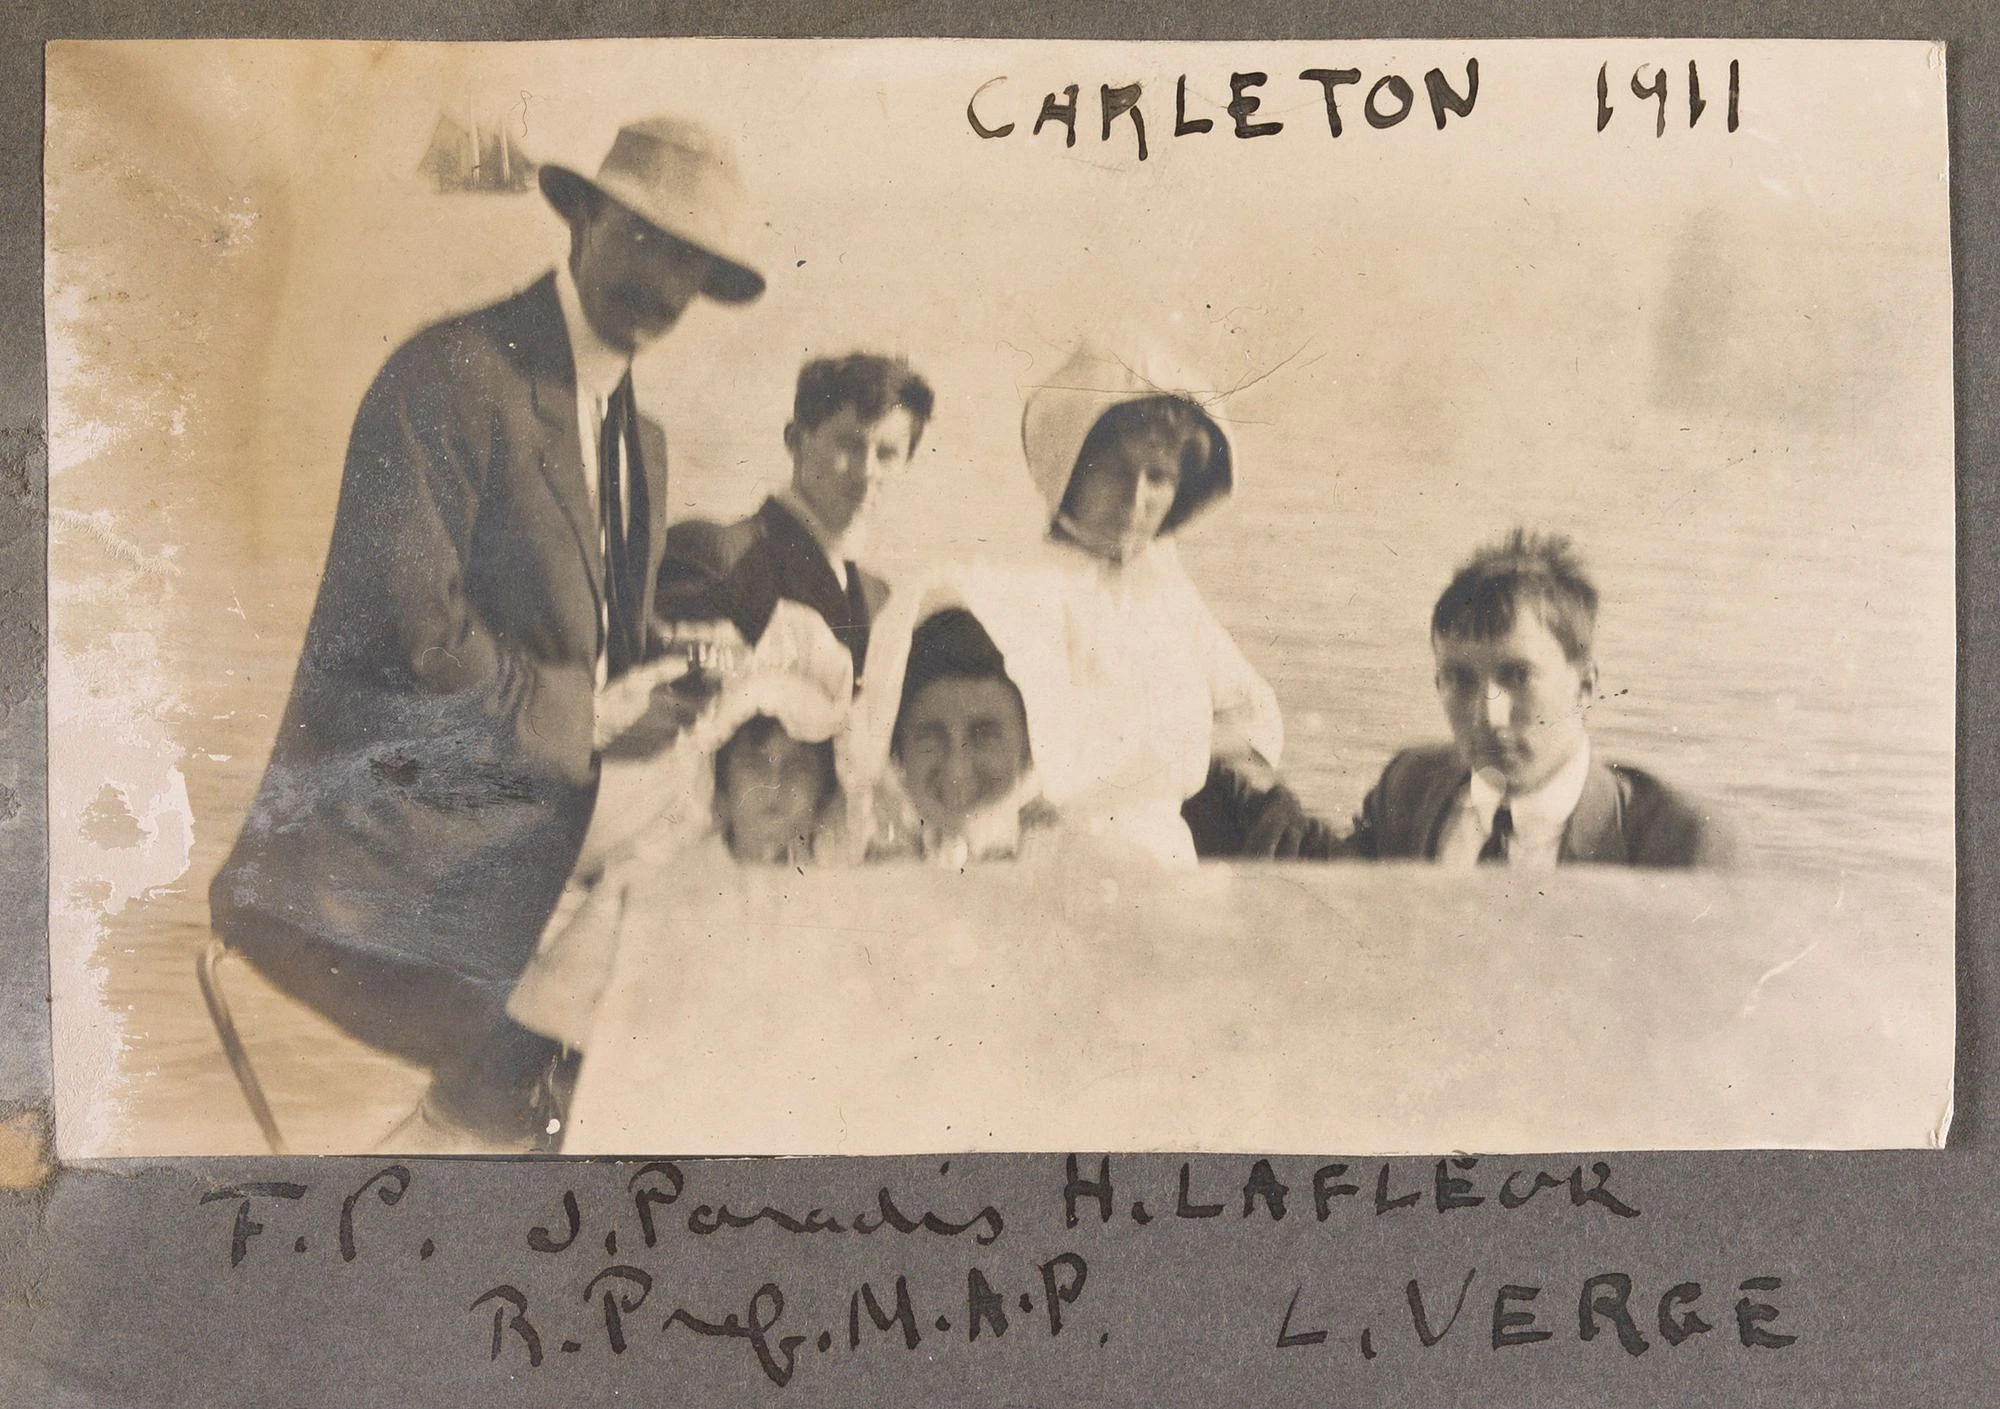 CARLETON 1911
F.P. J. Paradis H. LAFLEUR
R. Pref. M.A.P. L. VERGE